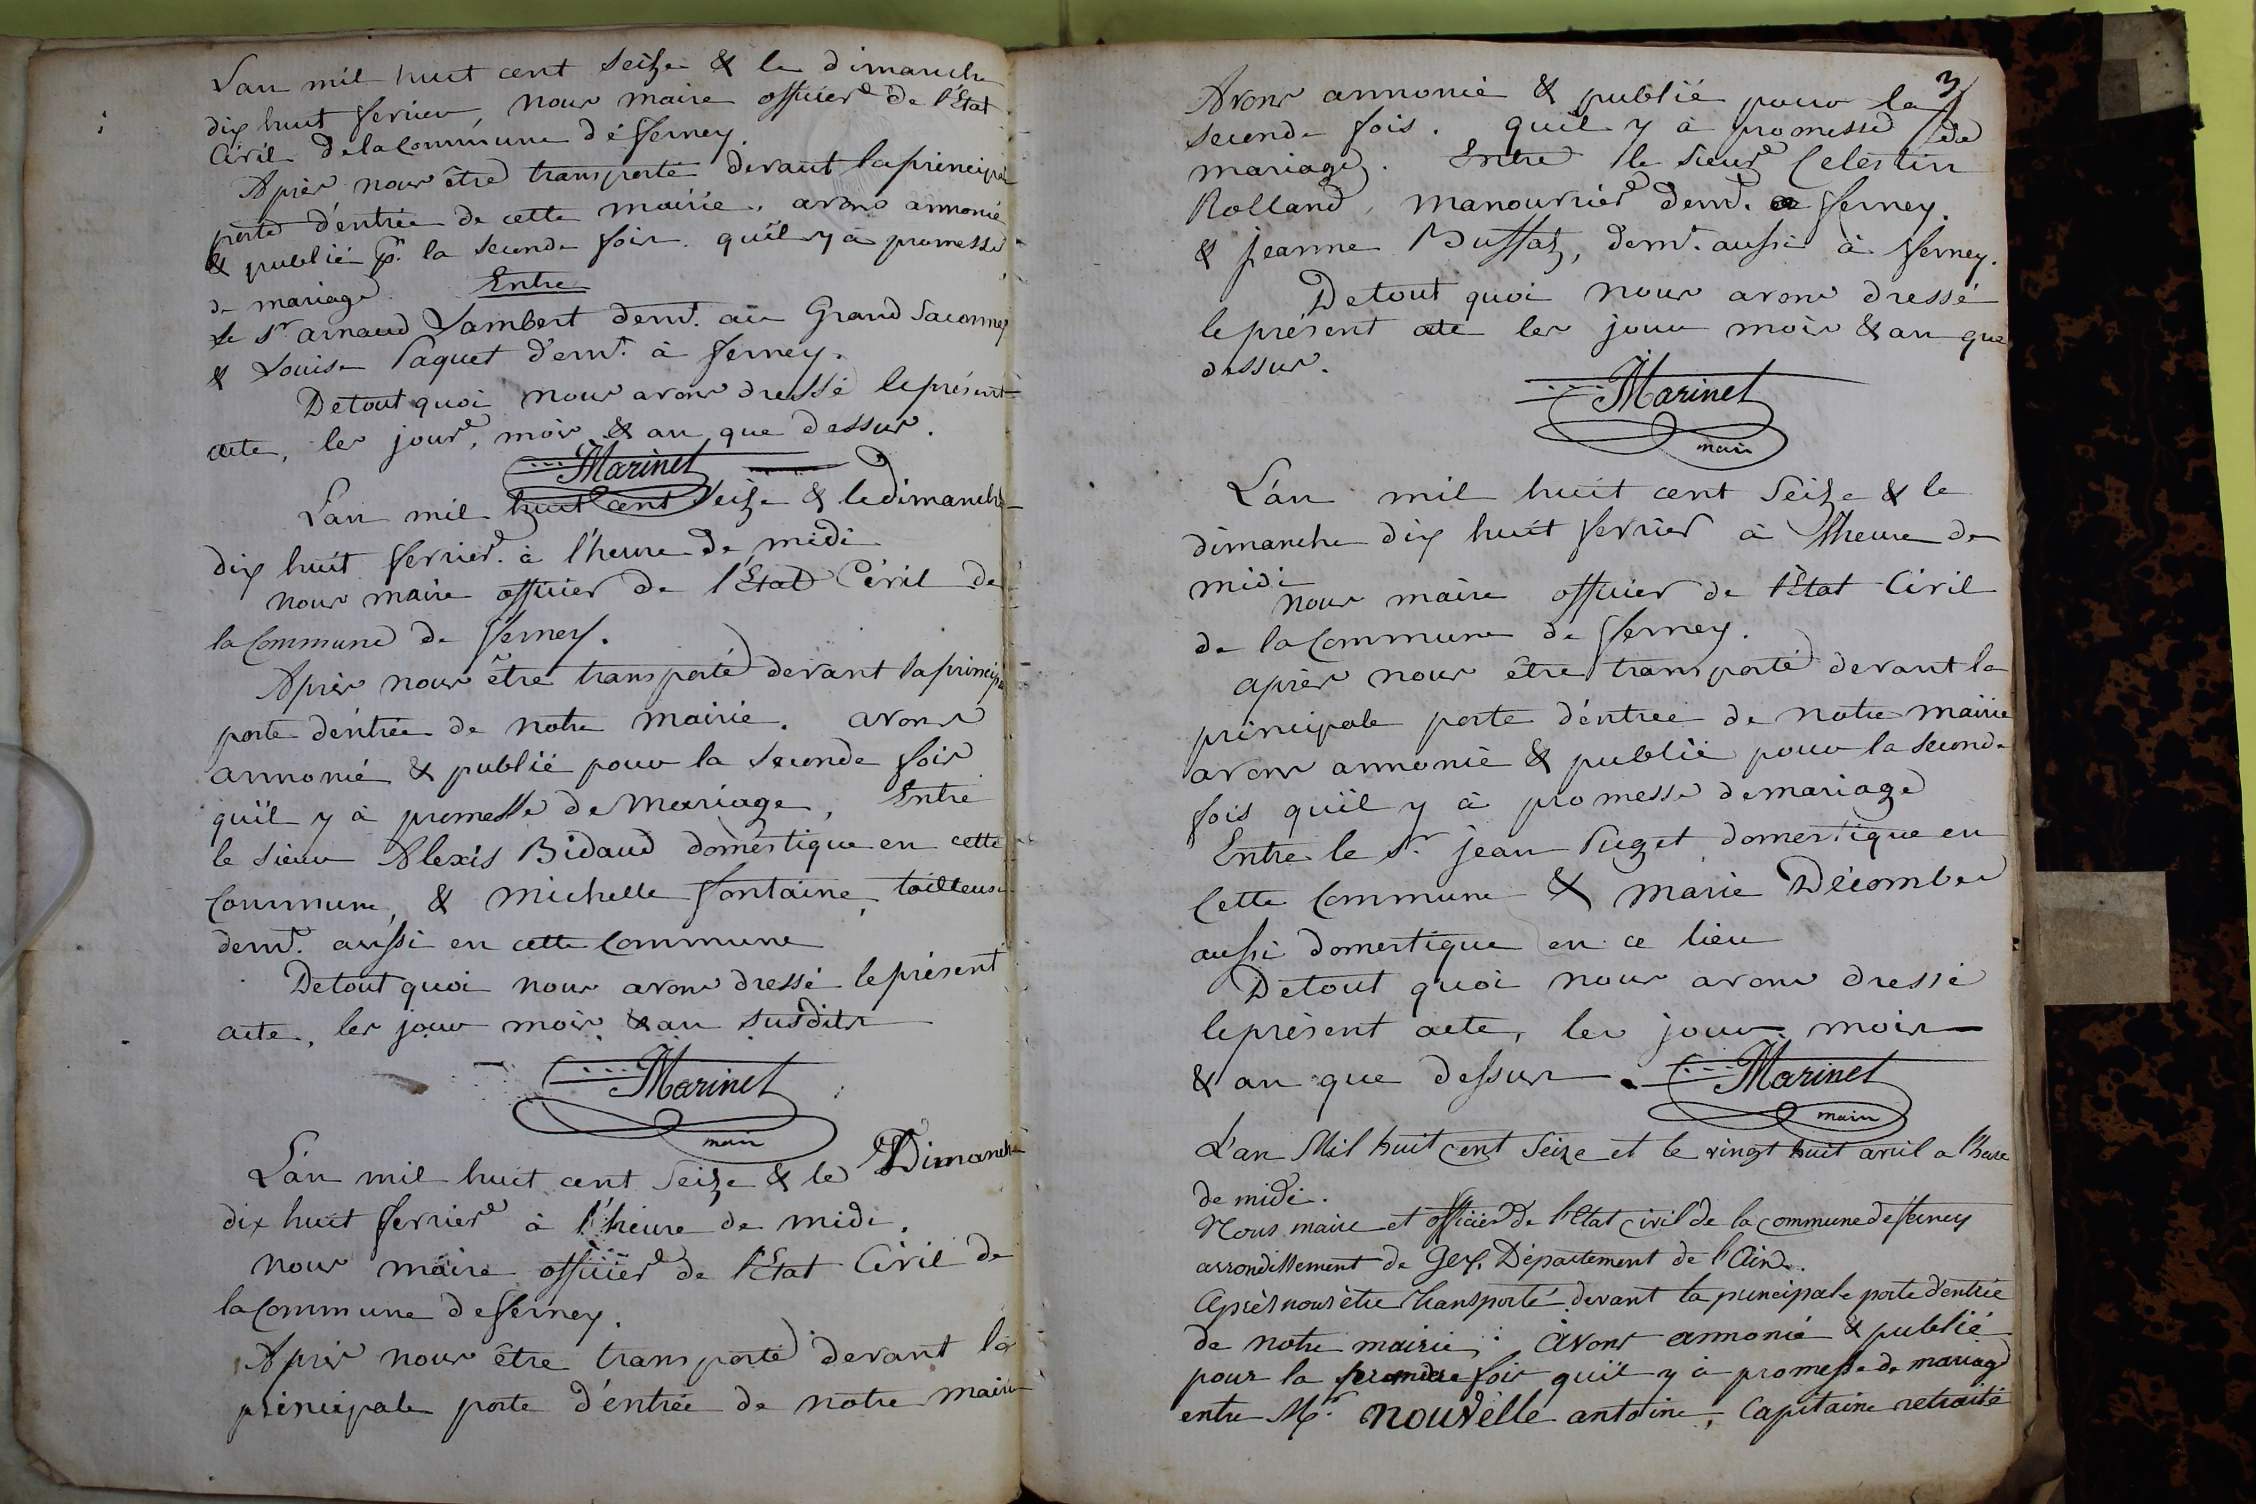 L'an mil huit cent Seize & le dimanche
dix huit fevrier, nous maire officier de l'Etat
Civil de la Commune dé ferney.
Après nous être transporté devant la principale
porte d'éntrée de cette mairie, avons annoncé
& publié pr. la seconde fois. qu'il y à promesse
de mariage. Entre
Le Sr arnaud Lambert demt. au Grand Saconney
& Louise Paquet demt. à ferney.
De tout quoi nous avons dressé le présent
acte, les jour, mois & an que dessus.
Marinet
L'an mil huit cent Seize & le dimanche
dix huit fevrier. à l'heure de midi
nous maire officier de l'Etat Civil de
la Commune de ferney.
Après nous être transporté devant la principale
porte d'éntrée de notre mairie. avons
annoncé & publié pour la seconde fois
qu'il y à promesse de mariage, Entre
le sieur Alexis Bidaud domestique en cette
Commune, & michelle fontaine, tailleuse
demt. aussi en cette Commune
De tout quoi nous avons dressé le présent
acte, les jour mois & an susdits
Marinet
maire
L'an mil huit cent Seize & le Dimanche
dix huit fevrier à l'heure de midi.
nous maire officier de l'Etat Civil de
la Commune de ferney.
Après nous être transporté devant la
principale porte d'éntrée de notre mairie
3
Avons annoncé & publié pour la
seconde fois. qu'il y à promesse de
mariage. Entre le sieur Celestin
Rolland, manouvrier demt. a ferney.
& jeanne Buffatz, demt. aussi à ferney.
De tout quoi nous avons dressé
le présent acte les jour mois & an que
dessus.
Marinet
maire
L'an mil huit cent Seize & le
dimanche dix huit fevrier à l'heure de
midi
nous maire officier de l'Etat Civil
de la Commune de ferney.
après nous être transporté devant la
principale porte d'éntrée de notre mairie
avons annoncé & publié pour la seconde
fois qu'il y à promesse de mariage
Entre le Sr. jean Puget domestique en
Cette Commune & marie Décombe
aussi domestique en ce lieu
De tout quoi nous avons dressé
le présent acte, les jour mois
& an que dessus. Marinet
maire
L'an Mil huit cent Seize et le vingt huit avril a l'heure
de midi.
Nous maire et officier de l'Etat civil de la commune de ferney
arrondissement de Gex, Département de l'Ain.
Après nous être transporté devant la principale porte d'entrée
de notre mairie, avons annoncé & publié
pour la premiere fois qu'il y à promesse de mariage
entre Mr. nouvelle antoine, Capitaine retraité